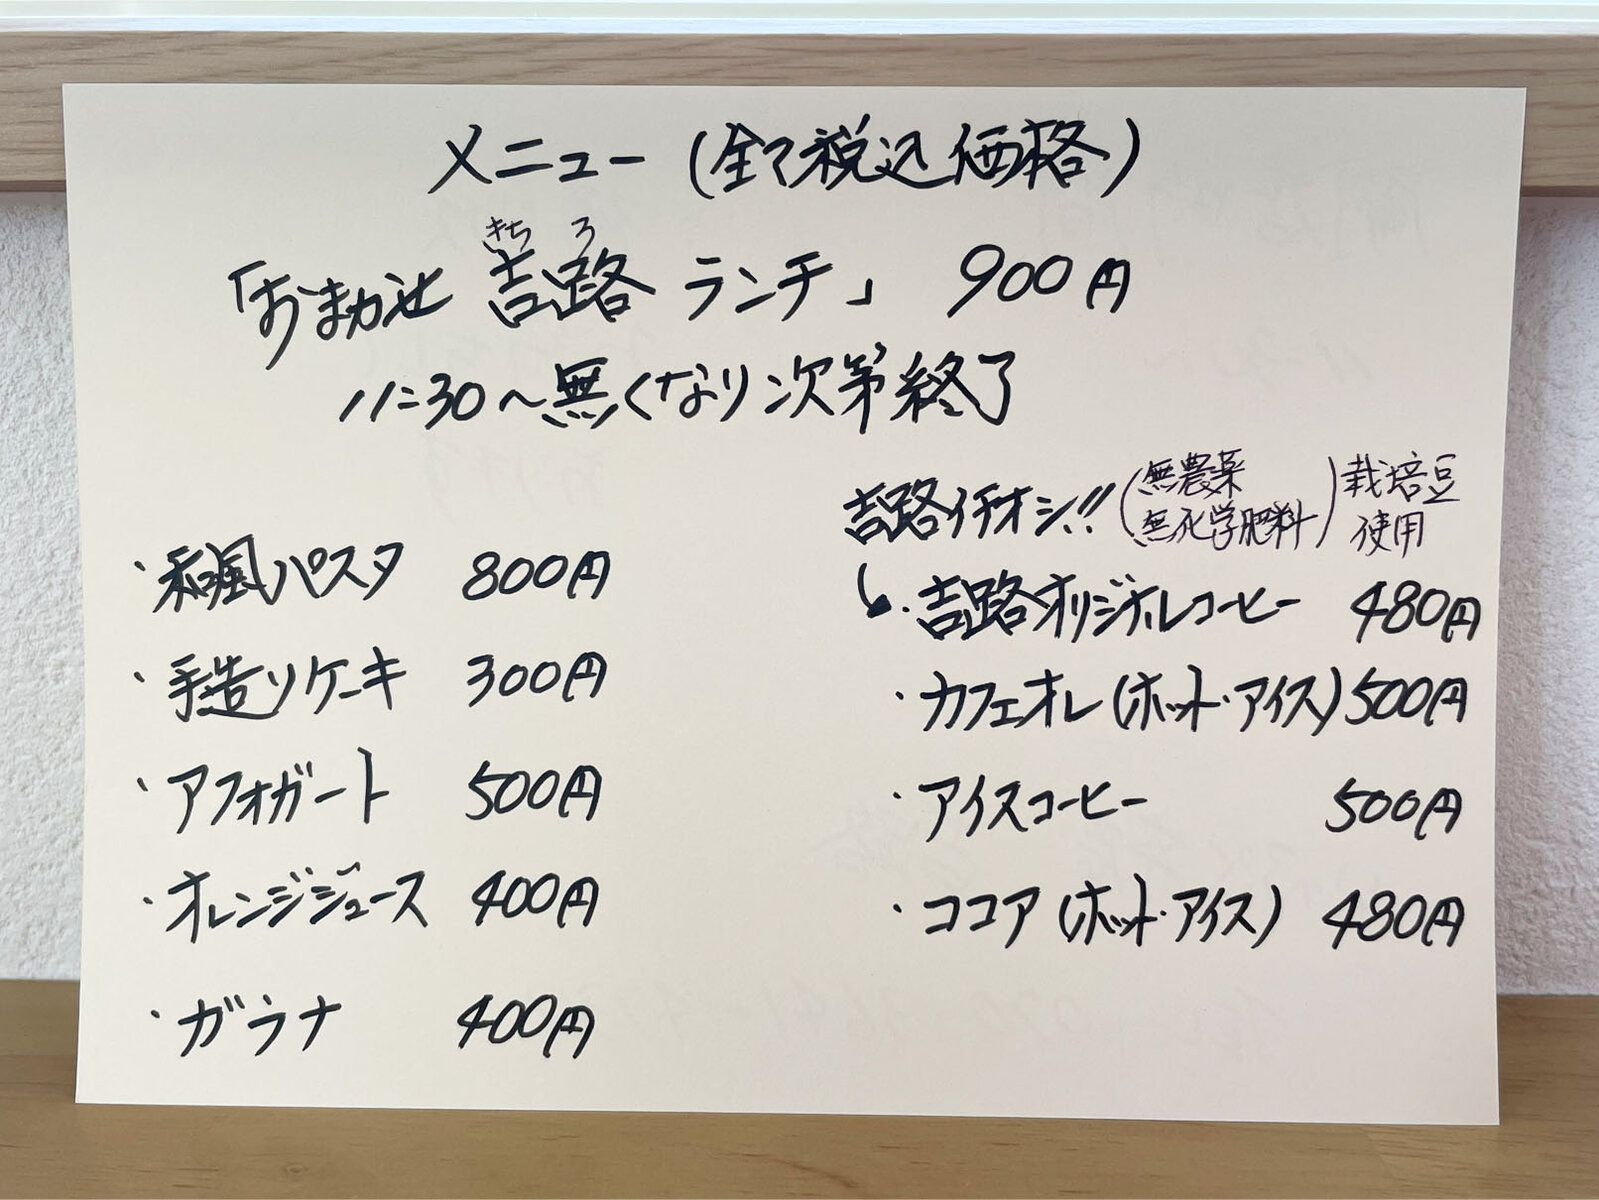 メニュー(全て税込価格)
きちろ
「おまかせ 吉路 ランチ」 900円
11:30〜無くなり次第終了
・和風パスタ 800円
・手造りケーキ 300円
・アフォガート 500円
・オレンジジュース 400円
・ガラナ 400円
吉路イチオシ!!(無農薬 無化学肥料)栽培豆使用
・吉路オリジナルコーヒー 480円
・カフェオレ(ホット・アイス)500円
・アイスコーヒー 500円
・ココア(ホット・アイス) 480円